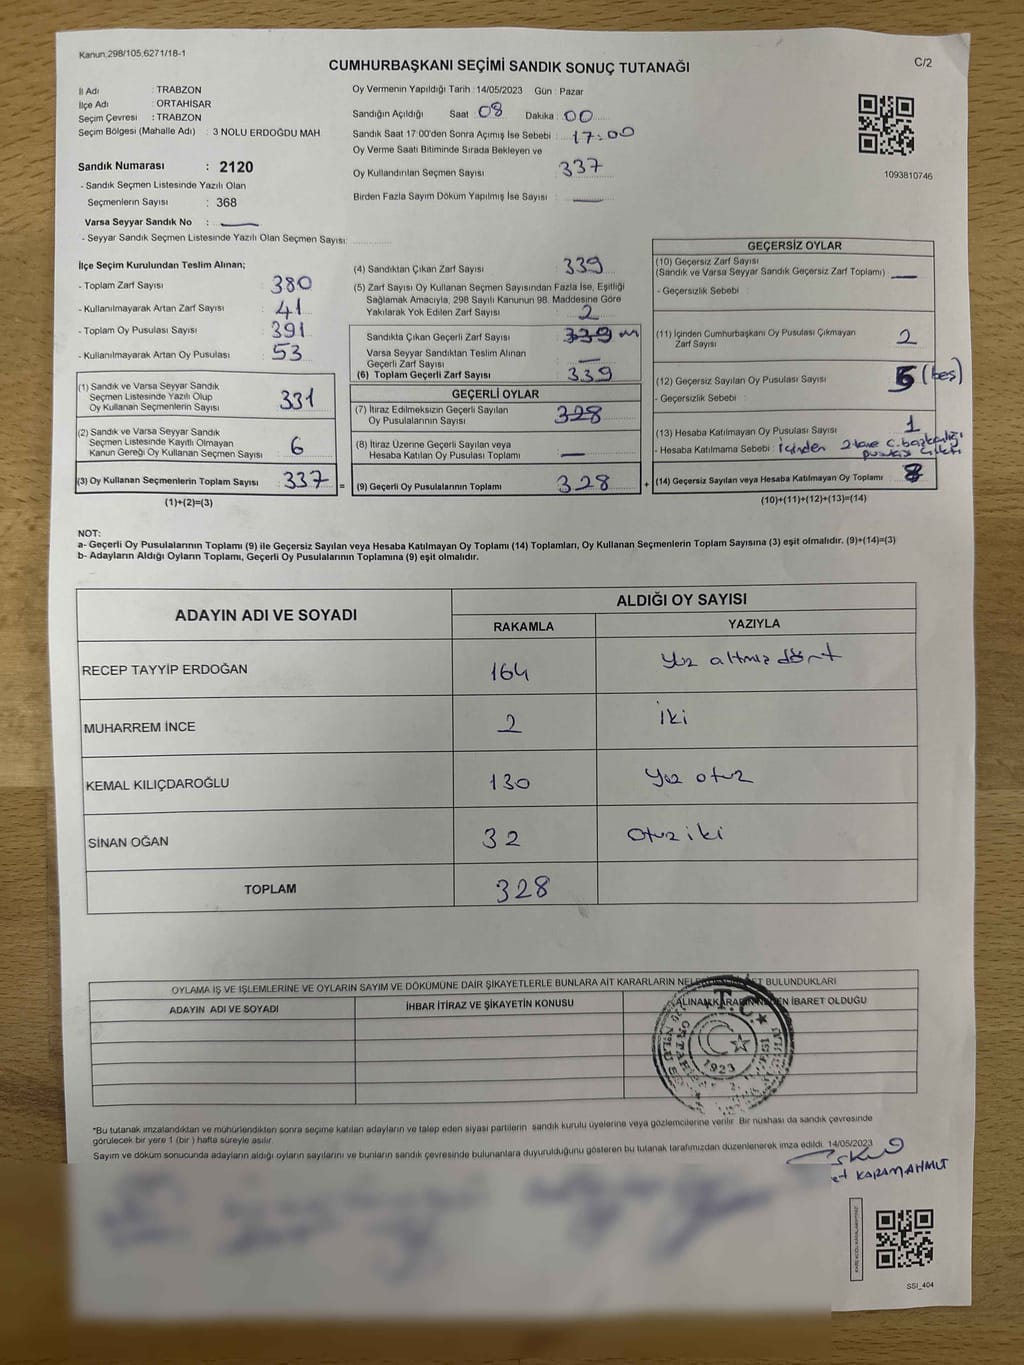 Kanun,298/105,6271/18-1
C/2
CUMHURBAŞKANI SEÇİMİ SANDIK SONUÇ TUTANAĞI
İl Adı : TRABZON
İlçe Adı : ORTAHİSAR
Seçim Çevresi : TRABZON
Seçim Bölgesi (Mahalle Adı) : 3 NOLU ERDOĞDU MAH
Sandık Numarası : 2120
- Sandık Seçmen Listesinde Yazılı Olan
Seçmenlerin Sayısı : 368
Varsa Seyyar Sandık No :
- Seyyar Sandık Seçmen Listesinde Yazılı Olan Seçmen Sayısı:
Oy Vermenin Yapıldığı Tarih : 14/05/2023 Gün : Pazar
Sandığın Açıldığı Saat : 08 Dakika : 00
Sandık Saat 17:00'den Sonra Açımış İse Sebebi : 17:00
Oy Verme Saati Bitiminde Sırada Bekleyen ve
Oy Kullandırılan Seçmen Sayısı : 337
Birden Fazla Sayım Döküm Yapılmış İse Sayısı :
1093810746
İlçe Seçim Kurulundan Teslim Alınan;
- Toplam Zarf Sayısı : 380
- Kullanılmayarak Artan Zarf Sayısı : 41
- Toplam Oy Pusulası Sayısı : 391
- Kullanılmayarak Artan Oy Pusulası : 53
(1) Sandık ve Varsa Seyyar Sandık
Seçmen Listesinde Yazılı Olup
Oy Kullanan Seçmenlerin Sayısı : 331
(2) Sandık ve Varsa Seyyar Sandık
Seçmen Listesinde Kayıtlı Olmayan
Kanun Gereği Oy Kullanan Seçmen Sayısı : 6
(3) Oy Kullanan Seçmenlerin Toplam Sayısı : 337
(1)+(2)=(3)
(4) Sandıktan Çıkan Zarf Sayısı : 339
(5) Zarf Sayısı Oy Kullanan Seçmen Sayısından Fazla İse, Eşitliği
Sağlamak Amacıyla, 298 Sayılı Kanunun 98. Maddesine Göre
Yakılarak Yok Edilen Zarf Sayısı : 2
Sandıkta Çıkan Geçerli Zarf Sayısı : 339
Varsa Seyyar Sandıktan Teslim Alınan
Geçerli Zarf Sayısı :
(6) Toplam Geçerli Zarf Sayısı : 339
GEÇERLİ OYLAR
(7) İtiraz Edilmeksizin Geçerli Sayılan
Oy Pusulalarının Sayısı : 328
(8) İtiraz Üzerine Geçerli Sayılan veya
Hesaba Katılan Oy Pusulası Toplamı :
(9) Geçerli Oy Pusulalarının Toplamı : 328
GEÇERSİZ OYLAR
(10) Geçersiz Zarf Sayısı
(Sandık ve Varsa Seyyar Sandık Geçersiz Zarf Toplamı) :
- Geçersizlik Sebebi :
(11) İçinden Cumhurbaşkanı Oy Pusulası Çıkmayan
Zarf Sayısı : 2
(12) Geçersiz Sayılan Oy Pusulası Sayısı : 5 (beş)
- Geçersizlik Sebebi :
(13) Hesaba Katılmayan Oy Pusulası Sayısı : 1
- Hesaba Katılmama Sebebi : içinden 2 tane c.başkanlığı
pusulası çıktı
(14) Geçersiz Sayılan veya Hesaba Katılmayan Oy Toplamı :
(10)+(11)+(12)+(13)=(14)
NOT:
a- Geçerli Oy Pusulalarının Toplamı (9) ile Geçersiz Sayılan veya Hesaba Katılmayan Oy Toplamı (14) Toplamları, Oy Kullanan Seçmenlerin Toplam Sayısına (3) eşit olmalıdır. (9)+(14)=(3)
b- Adayların Aldığı Oyların Toplamı, Geçerli Oy Pusulalarının Toplamına (9) eşit olmalıdır.
ADAYIN ADI VE SOYADI ALDIĞI OY SAYISI
RAKAMLA YAZIYLA
RECEP TAYYİP ERDOĞAN 164 Yüz altmış dört
MUHARREM İNCE 2 İki
KEMAL KILIÇDAROĞLU 130 Yüz otuz
SİNAN OĞAN 32 Otuz iki
TOPLAM 328
OYLAMA İŞ VE İŞLEMLERİNE VE OYLARIN SAYIM VE DÖKÜMÜNE DAİR ŞİKAYETLERLE BUNLARA AİT KARARLARIN BULUNDUKLARI
ADAYIN ADI VE SOYADI İHBAR İTİRAZ VE ŞİKAYETİN KONUSU ALINAN KARARIN NEDEN İBARET OLDUĞU
T.C.
1923
*Bu tutanak imzalandıktan ve mühürlendikten sonra seçime katılan adayların ve talep eden siyasi partilerin sandık kurulu üyelerine veya gözlemcilerine verilir. Bir nüshası da sandık çevresinde
görülecek bir yere 1 (bir) hafta süreyle asılır.
Sayım ve döküm sonucunda adayların aldığı oyların sayılarını ve bunların sandık çevresinde bulunanlara duyurulduğunu gösteren bu tutanak tarafımızdan düzenlenerek imza edildi. 14/05/2023
KARAMAHMUT
SSI_404